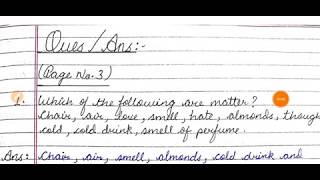 Ques/Ans:-
(Page No. 3)
1. Which of the following are matter?
Chair, air, love, smell, hate, almonds, though
cold, cold drink, smell of perfume.
Ans: Chair, air, smell, almonds, cold drink and